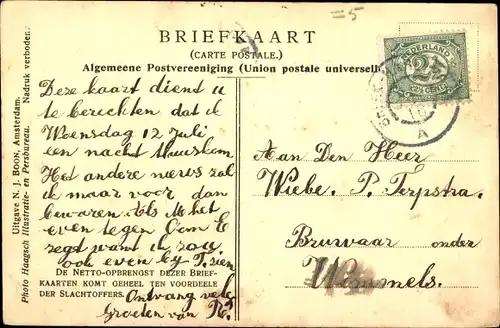 =5
BRIEFKAART
(CARTE POSTALE.)
Algemeene Postvereeniging (Union postale universelle
NEDERLAND
2½
2½ CENT
A
Uitgave N. J. BOON, Amsterdam.
Photo Haagsch Illustratie- en Persbureau. Nadruk verboden.
Deze kaart dient u
te berichten dat ik
Woensdag 12 Juli
een nacht thuiskom
Het andere nieuws zal
ik maar voor dan
bewaren. Als je het
even tegen Oom E
zegt want ik zou
ook even by T. zien
DE NETTO-OPBRENGST DEZER BRIEF-
KAARTEN KOMT GEHEEL TEN VOORDEELE
DER SLACHTOFFERS.
Ontvang vele
Groeten van
Aan Den Heer
Wiebe. P. Terpstra.
onder
Wommels.